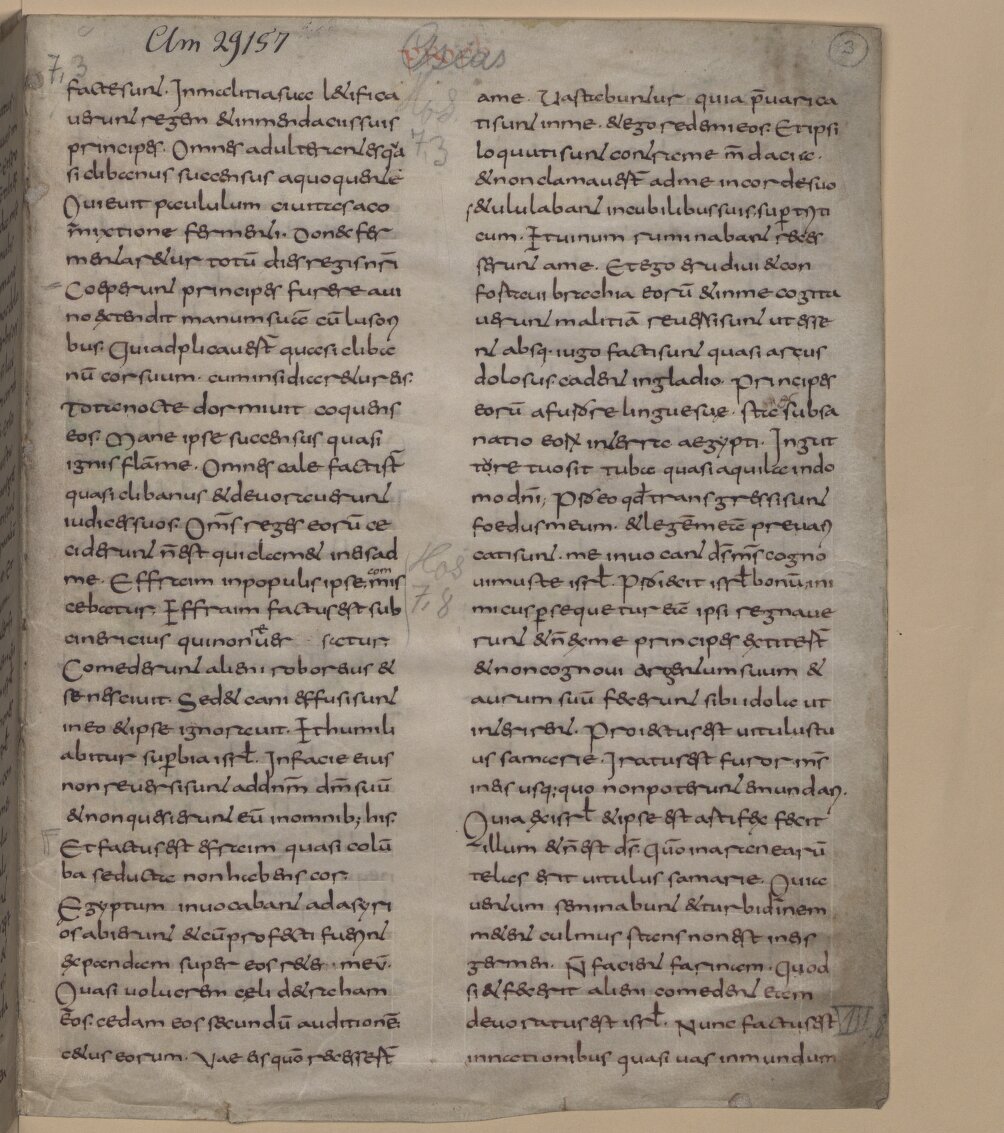 Clm 29157
Oseas
3
7,3
factesunt. Inmalitiasua laetifica
uerunt regem & inmendaciissuis
principes. Omnes adulterantesqua
si clibanus succensus aquoquente
Quieuit paululum ciuitasaco
mixtione fermenti. Donec fer
mentaretur totū dies regis nri
Coeperunt principes furere aui
no extendit manumsuā cū lusori
bus. Quiadplicauert quasi cliba
nū corsuum. cuminsidiaretureis.
Totanocte dormiuit coquens
eos. Mane ipse succensus quasi
ignis flāme. Omnes calefactist
quasi clibanus & deuorauerunt
iudicessuos. Oms reges eorū ce
ciderunt n est quiclamet ineisad
me. Effraim inpopulis ipse comis
cebatur. Effraim factusest sub
cinericius quinonreuersatur
Comederunt alieni roboreius &
nesciuit. Sed& cani effusisunt
ineo & ipse ignorauit. Et humili
abitur superbia isrl. Infacie eius
nonreuersisunt addnm dm suū
& nonquesierunt eū inomnib; his.
Etfactusest efraim quasi colū
ba seducta nonhabens cor.
Egyptum inuocabant adasyri
os abierunt & cū profecti fuerint
expandam super eos rete meū.
Quasi uolucrem celi detraham
eos. cedam eos secundū auditionē
cetus eorum. Vae eis quō recesser̄t
Hos
7,3
Hos
7,8
ame. Uastabuntur quia p̄uarica
tisunt inme. & ego redemieos. Etipsi
loquutisunt contrame m̄dacia.
& nonclamauer̄t adme incordesuo
sed ululabant incubilibussuis. sup triti
cum. Et uinum ruminabant reces
serunt ame. Etego erudiui & con
fortaui brachia eorū & inme cogita
uerunt malitiā reuersisunt utesse
nt absq. iugo factisunt quasi arcus
dolosus. cadent ingladio. Principes
eorū afurore linguesue. Ista subsa
natio eorum interra aegypti. Ingut
tore tuosit tuba quasi aquila indo
modni; Proeo qd transgressisunt
foedusmeum. & legēmeā preuari
catisunt. me inuocant ds ms cogno
uimuste isrl. Proiecit isrl bonū, ini
micus persequetur eū ipsi regnaue
runt & n exme principes extiter̄t
& noncognoui argentumsuum &
aurum suū fecerunt sibi idola ut
interirent. Proiectusest uitulustu
us samarie. Iratusest furor ms
ineis usq; quo nonpoterunt emundari.
Quia exisrl & ipse est artifex fecit
illum & n est ds. Quō inaranearū
telas erit uitulus samarie. Quia
uentum seminabunt & turbidinem
metent culmus stans nonest ineis
germen. N̄ faciet farinam. Quod
si & fecerit alieni comedent eam
deuoratusest isrl. Nunc factusest
innationibus quasi uas inmundum
VIII,8